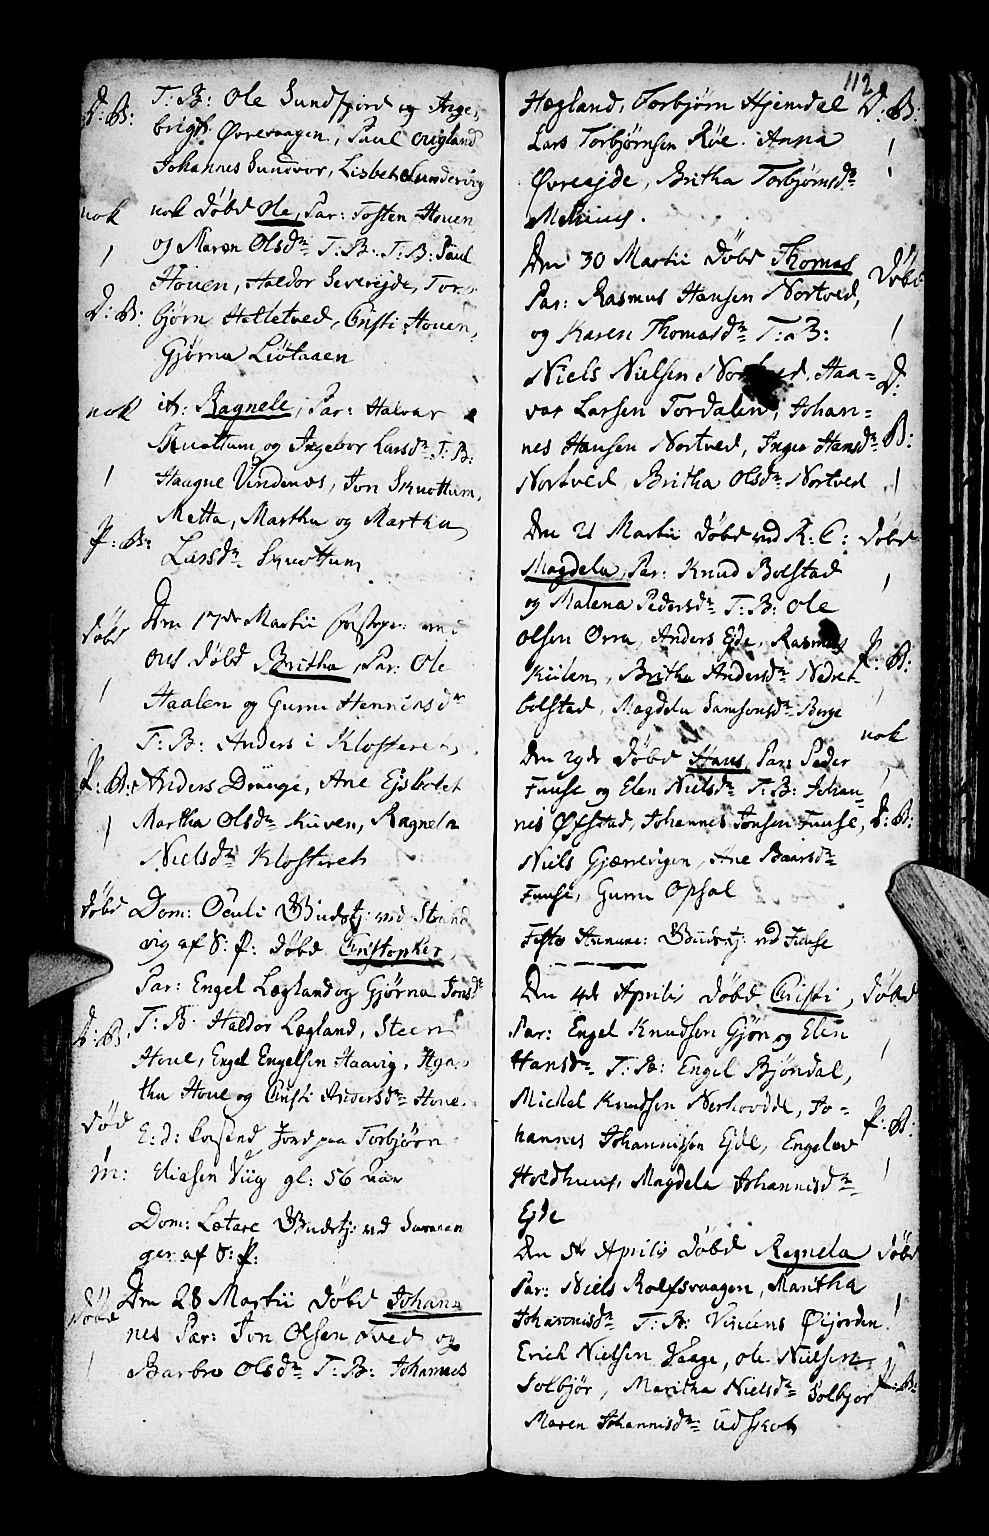 D: B: T: B: Ole Sundfjord og Inge-
brigt Øvrevaagen, Paul Øigland
Johannes Sundvor, Lisbet Lundervig
nok nok Døbd Ole, Par: Tosten Houen
1 og Maren Olsdr: T: B: T: B: Paul
Houen, Haldor Severejde, Tor-
D: B: bjørn Helletved, Cristi Houen,
Gjørna Liøtaaen
nok it: Ragnele, Par: Halvar
Skuottum og Ingebor Larsdr: T: B:
1 Haagne Vindenes, Jon Skuottum,
Metta, Martha og Martha
P: B: Larsdr: Skuottum
Den 17de Martii
Døbd Døbd Britha, Par: Ole
1 Haalen og Gurru Henrichsdr
T: B: Anders i Klosteret,
P: B: Anders Drange, Ane Ejsbolet
1 Martha Olsdr: Kuven, Ragnela
Nielsdr: Klosteret
Døbd Dom: Oculi Gudstj: ved Strand
vig af S: P: Døbd Cristopher,
Par: Engel Lægland og Gjørna Jonsdr
D: B: T: B: Haldor Lægland, Steen
Houe, Engel Engelsen Haavig, Aga-
tha Houe og Cristi Andersdr: Houe.
Død E: d: Jord paa Torbjørn
m: Eliasen Viig gl: 56 Aar
Dom: Lætare Gudstj: ved Samnan
ger af S: P:
Døbd Den 28 Martii Døbd Johan-
nes Par: Jon Olsen Tved og
1 Barbro Olsdr: T: B: Johannes
112
Hegland, Torbjørn Hjemdal D: B:
Lars Torbjørnsen Røe. Anna 1
Øvreejde, Britha Torbjørnsdr: 1
Den 30 Martii Døbd Thomas Døbd
Par: Rasmus Hansen Nortved,
og Karen Thomasdr: T: B: 1
Niels Nielsen Nortved, Haa- D:
var Larsen Tordalen, Johan-
nes Hansen Nortved, Inger Hansdr: B:
Nortved, Britha Olsdr: Nortved 1
Den 21 Martii Døbd ved R: C: Døbd
Magdela, Par: Knud Bolstad 1
og Malena Pedersdr: T: B: Ole
Olsen Orra, Anders Ejde, Rasmus P: B:
Kiilen, Britha Andersdr: Nedre- 1
bolstad, Magdela Samsonsdr: Berge
Den 29de Døbd Hans Par: Peder nok
Fuuse og Elen Nielsdr: T: B: Johan- 1
nis Opstad, Johannes Jonsen Fuuse, D: B:
Niels Gjærevigen, Ane Baarsdr:
Fuuse, Gurru Opsal
Festo Annunc: Gudstj: ved Fuuse
Den 4de Aprilis Døbd Cristi, Døbd
Par: Engel Knudsen Gjøn og Elen
Hansdr: T: B: Engel Bjøndal, 1
Mickel Knudsen Nerhovde, Jo-
hannes Johannissen Ejde, Engelev P: B:
Holdhuus, Magdela Johannisdr: 1
Ejde
Den 5te Aprilis Døbd Ragnela Døbd
Par: Niels Rolfsvaagen, Maritha
Johannisdr: T: B: Vincens Øijorden 1
Erich Nielsen Vaage, ole Nielsen
Solbjør, Maritha Nielsdr: Solbjør P: B:
Maren Johannisdr: Udskot